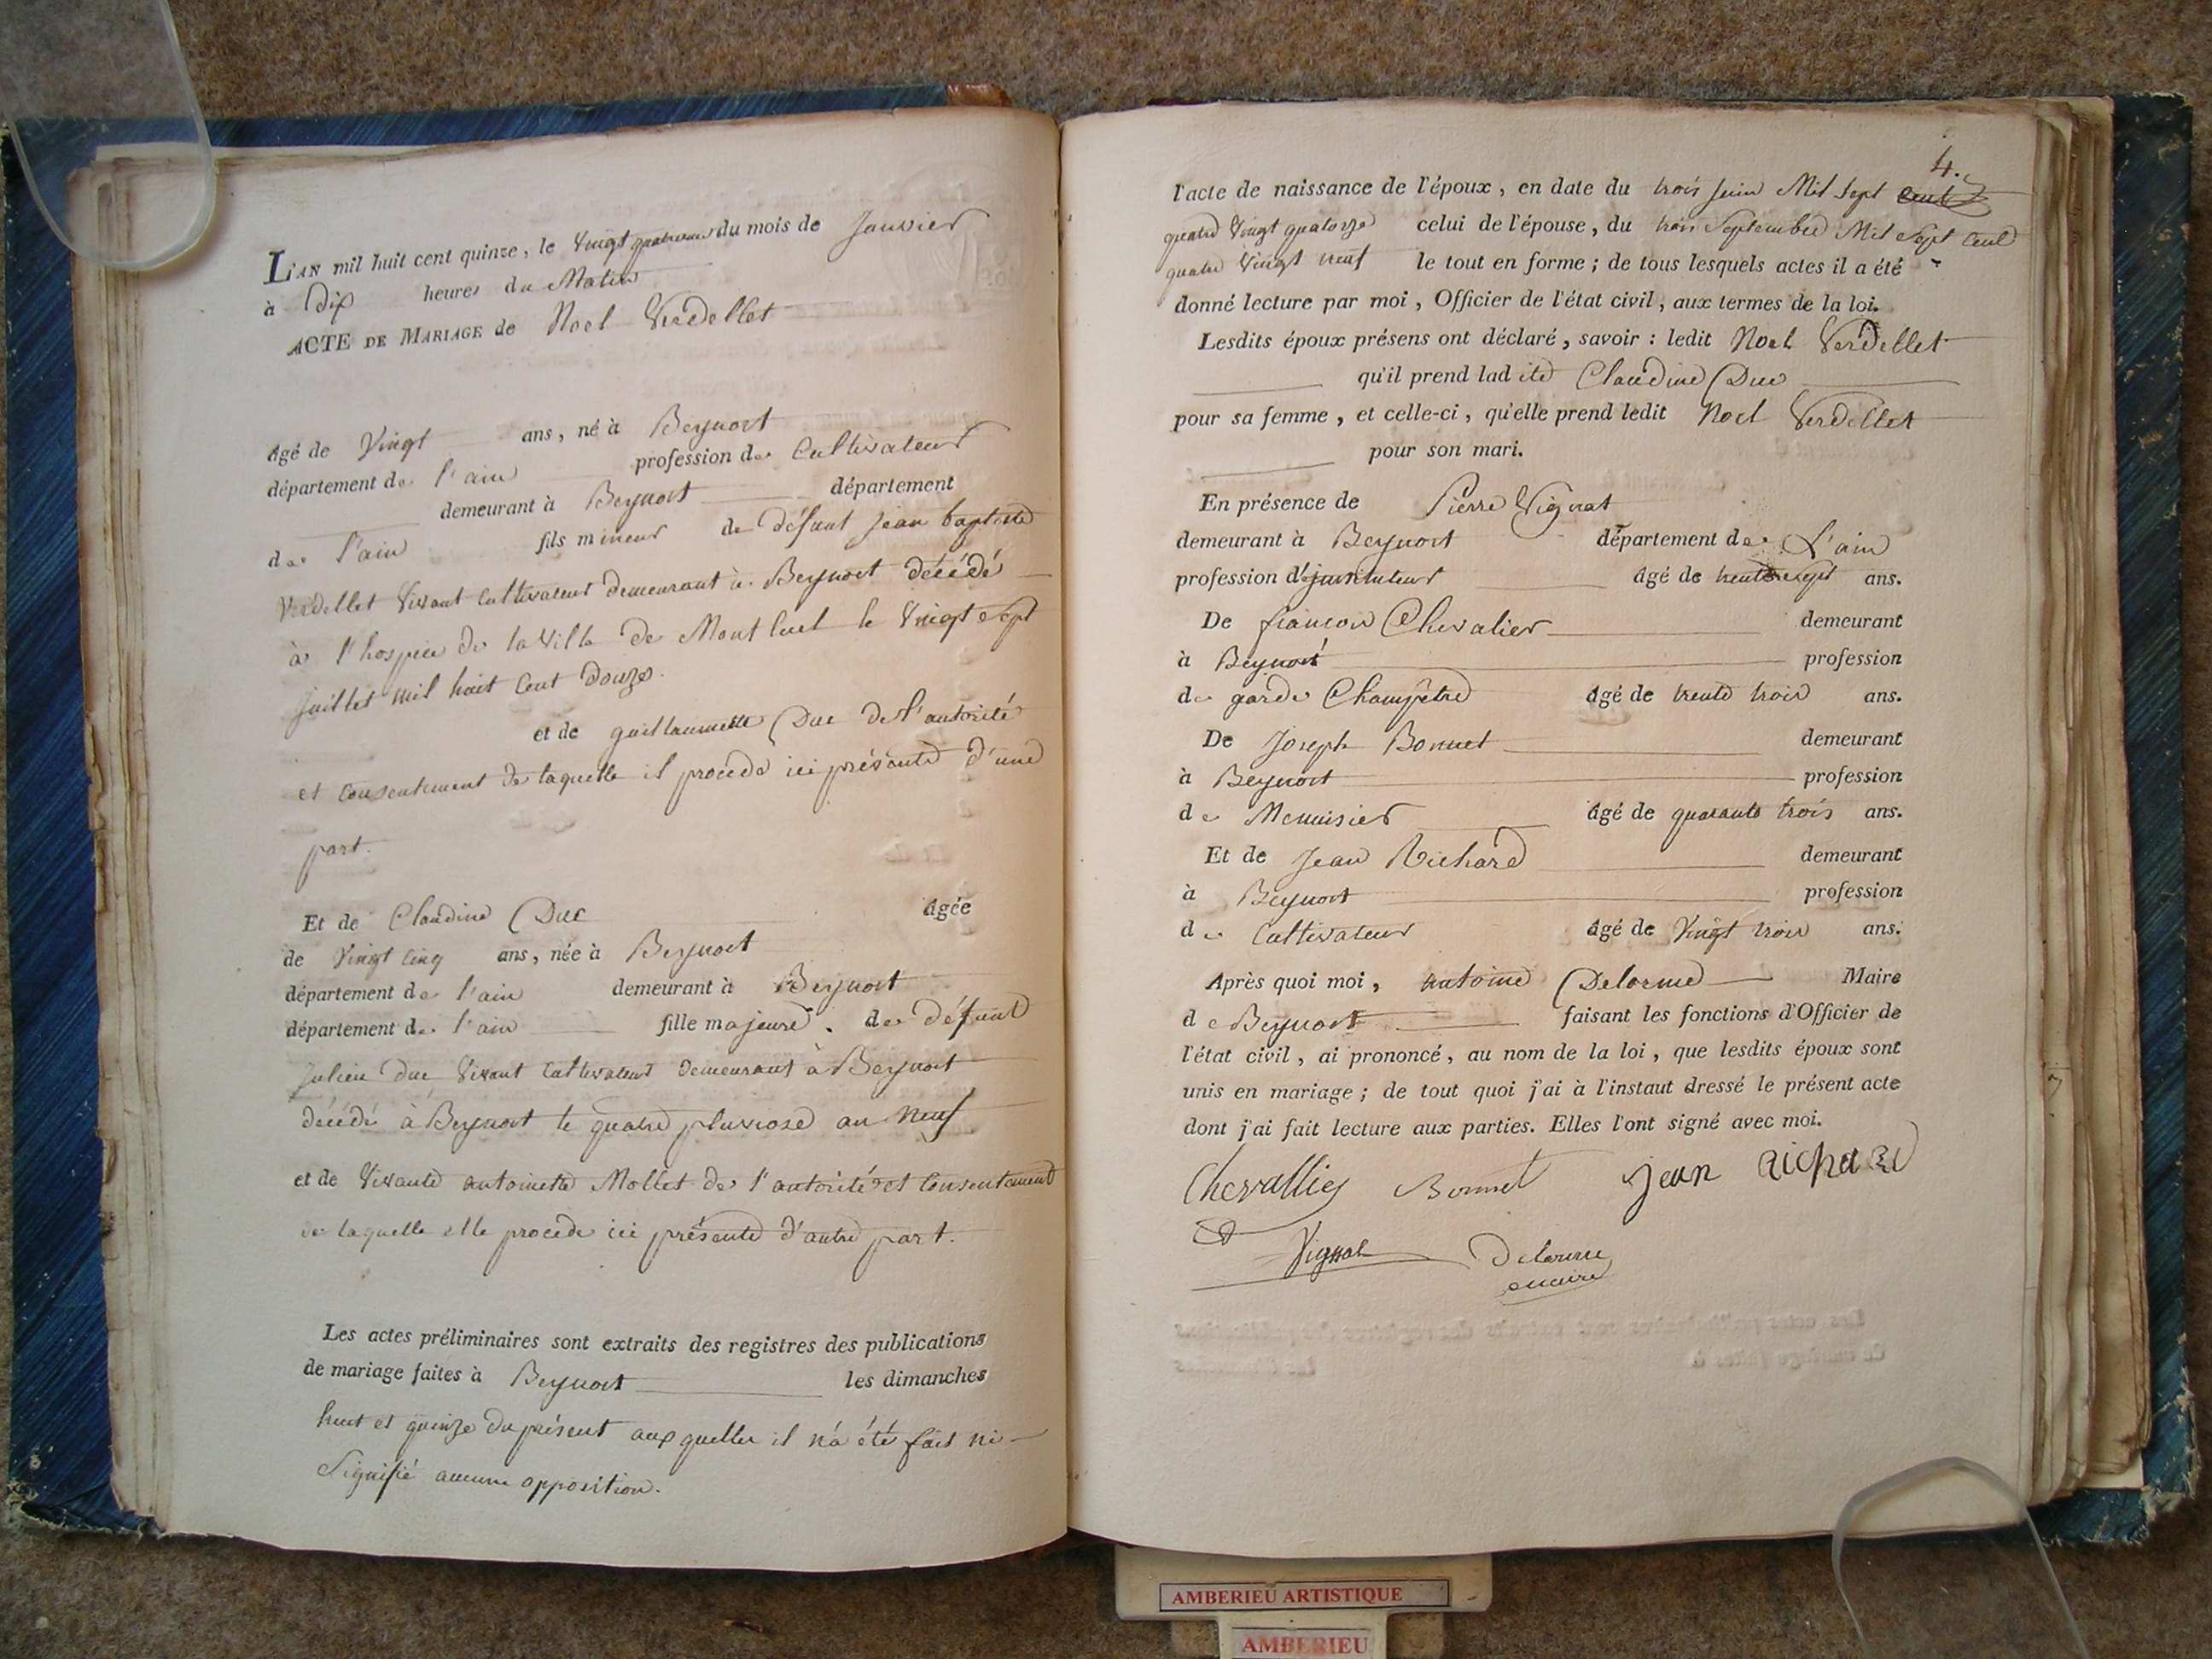 L'AN mil huit cent quinze, le Vingt quatrieme du mois de Janvier
à Dix heures du Matin
ACTE DE MARIAGE de Noel Verdellet
âgé de Vingt ans, né à Beynost
département de l'ain profession de Cultivateur
demeurant à Beynost département
de l'ain fils mineur de défunt Jean baptiste
Verdellet Vivant Cultivateur demeurant à Beynost décédé
à l'hospice de la Ville de Montluel le Vingt Sept
Juillet mil huit Cent Douze.
et de guillaumette Duc de l'autorité
et consentement de laquelle il procede ici présente d'une
part.
Et de Claudine Duc âgée
de Vingt Cinq ans, née à Beynost
département de l'ain demeurant à Beynost
département de l'ain fille majeure. de défunt
Julien Duc Vivant Cultivateur demeurant à Beynost
décédé à Beynost le quatre pluviose an Neuf
et de Vivante antoinette Mollet de l'autorité et Consentement
de laquelle elle procede ici présente d'autre part.
Les actes préliminaires sont extraits des registres des publications
de mariage faites à Beynost les dimanches
huit et quinze du présent aux quelles il n'a été fait ni
Signifié aucune opposition.
4.
l'acte de naissance de l'époux, en date du trois Juin Mil Sept cent
quatre Vingt quatorze celui de l'épouse, du trois Septembre Mil Sept Cent
quatre Vingt neuf le tout en forme; de tous lesquels actes il a été
donné lecture par moi, Officier de l'état civil, aux termes de la loi.
Lesdits époux présens ont déclaré, savoir: ledit Noel Verdellet
qu'il prend lad ite Claudine Duc
pour sa femme, et celle-ci, qu'elle prend ledit Noel Verdellet
pour son mari.
En présence de Pierre Vignat
demeurant à Beynost département de L'ain
profession d'instituteur âgé de trente sept ans.
De françois Chevalier demeurant
à Beynost profession
de garde Champêtre âgé de trente trois ans.
De Joseph Bonnet demeurant
à Beynost profession
de Menuisier âgé de quarante trois ans.
Et de Jean Richard demeurant
à Beynost profession
de Cultivateur âgé de Vingt trois ans.
Après quoi moi, antoine Delorme Maire
de Beynost faisant les fonctions d'Officier de
l'état civil, ai prononcé, au nom de la loi, que lesdits époux sont
unis en mariage; de tout quoi j'ai à l'instaut dressé le présent acte
dont j'ai fait lecture aux parties. Elles l'ont signé avec moi.
Chevallier Bonnet Jean Richard
Vignat Delorme
maire
AMBERIEU ARTISTIQUE
AMBERIEU